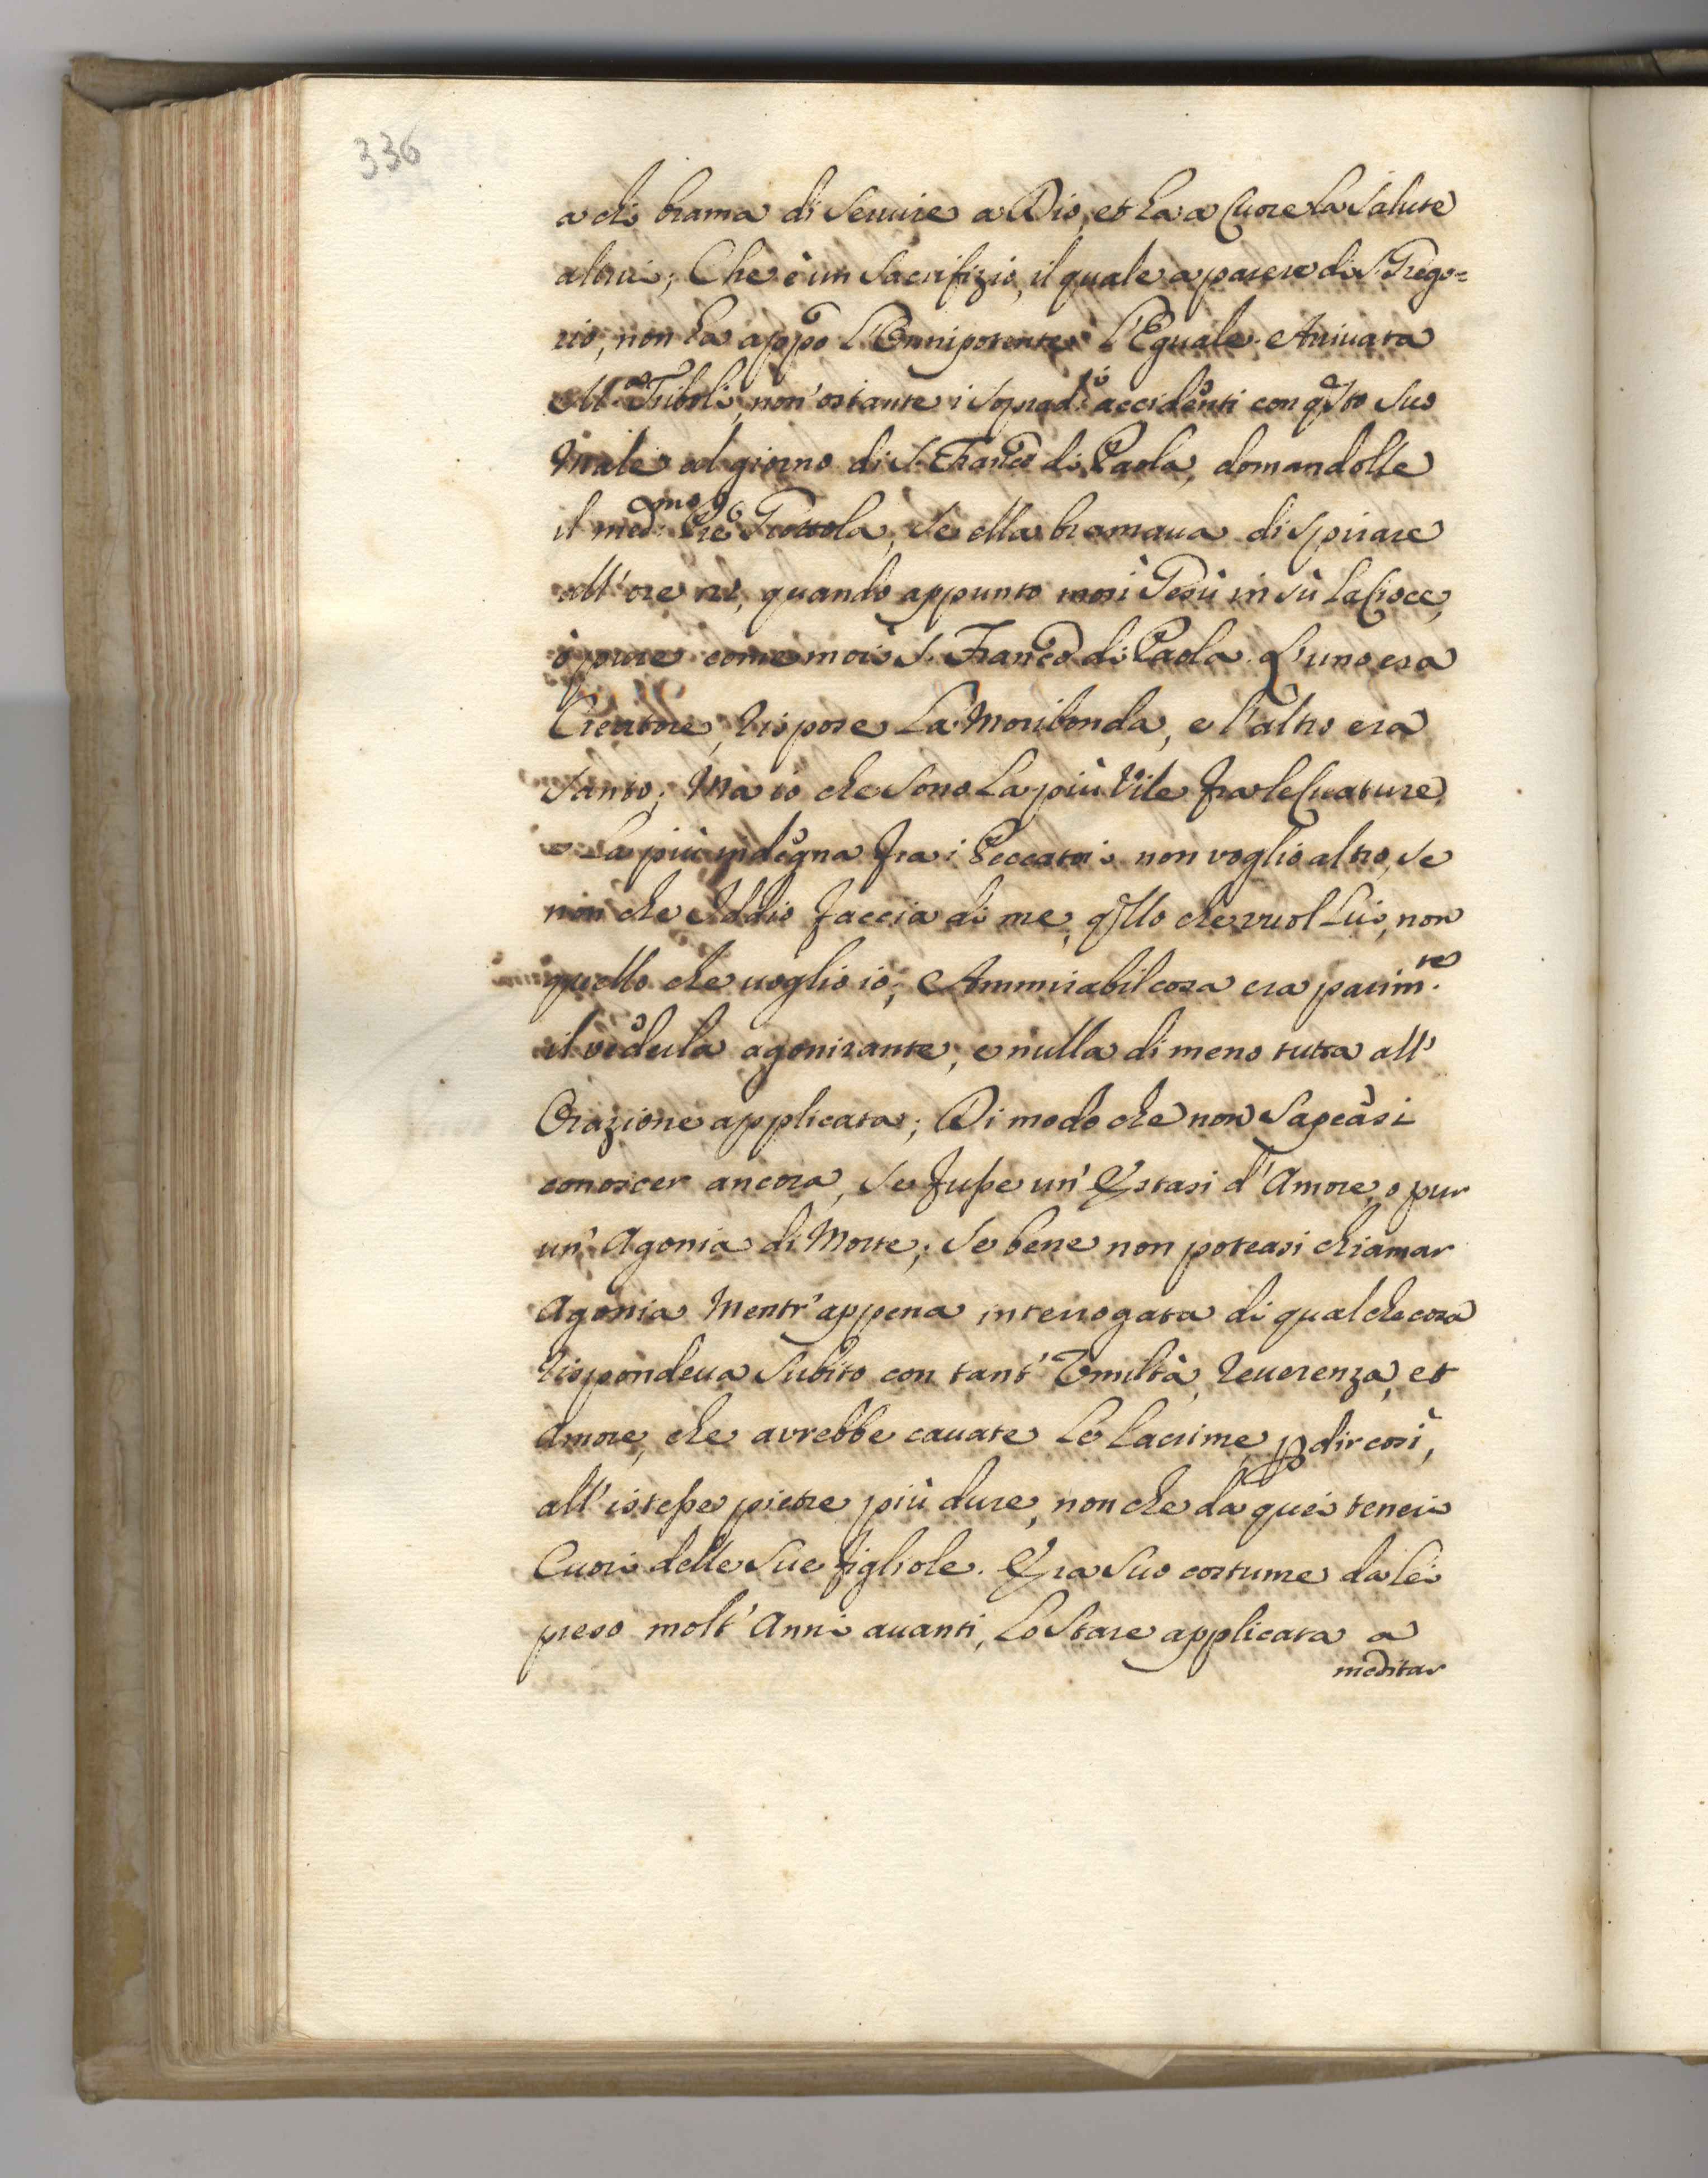 336
a chi brama di Seruire a Dio, et ha a Cuore la Salute
altrui; Che è un Sacrifizio, il quale a parere di S. Grego=
rio, non ha appo l'Onnipotente l'Eguale. Arriuata
M.ª Triboli, non'ostante i soprad.ⁱ accidenti con qsto suo
Male al giorno di S. Franco di Paola, domandolle
il med.mo Pre Grottola, se ella bramaua di Spirare
all'ore 21, quando appunto morì Gesù in sù la Croce,
ò pure come morì S. Franco di Paola. L'uno era
Creatore, rispose la Moribonda, e l'altro era
Santo; Ma io che sono la più Vile fra le Creature,
e la più indegna fra i Peccatori non voglio altro, se
non che Iddio faccia di me, qllo che vuol Lui, non
quello che uoglio io; Ammirabil cosa era parim.te
il vederla agonizante, e nulla di meno tutta all'
Orazione applicata; Di modo che non Sapeàsi
conoscer ancora, se fuße un' Estasi d'Amore, o pur
un' Agonia di Morte; Se bene non poteasi chiamar
Agonia Mentr'appena interrogata di qualche cosa
rispondeua Subito con tant' Vmiltà, reuerenza, et
Amore, che avrebbe cauate le lacrime, p dir così,
all'isteße pietre più dure, non che da quei teneri
Cuori delle Sue figliole. Era Suo costume da lei
preso molt' Anni auanti, lo Stare applicata a
meditar